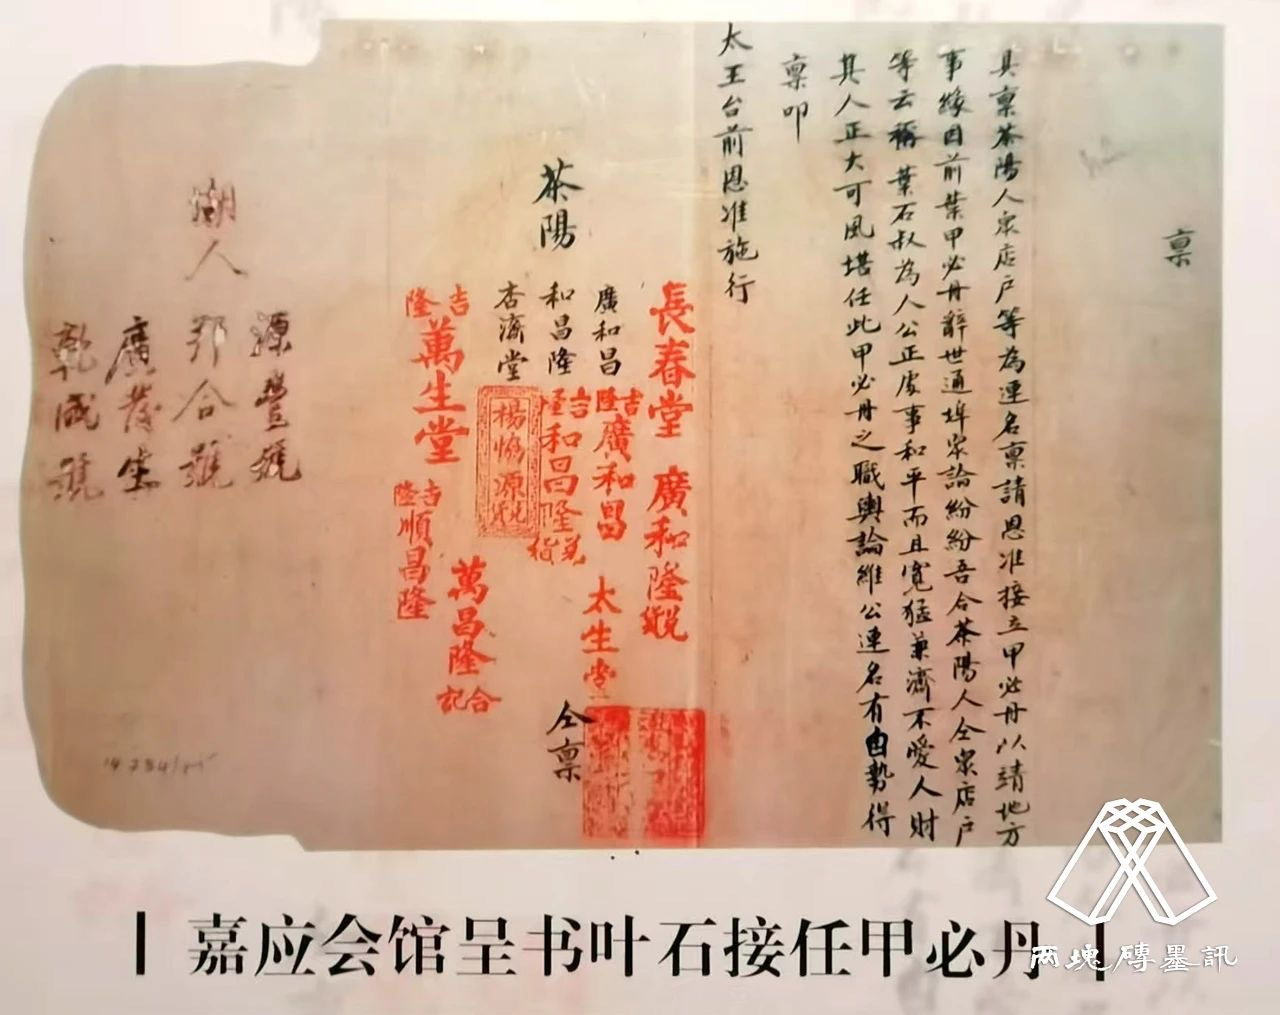 稟
具稟茶陽人衆店戶等為連名稟請恩准接立甲必丹以靖地方
事緣因前葉甲必丹辭世通埠衆論紛紛吾合茶陽人仝衆店戶
等云稱葉石叔為人公正處事和平而且寬猛兼濟不愛人財
其人正大可風堪任此甲必丹之職輿論維公連名有由勢得
稟叩
太王台前恩准施行
長春堂
廣和隆號
廣和昌
吉隆廣和昌
太生堂
茶陽
和昌隆
吉隆和昌隆
仝稟
杏濟堂
萬昌隆
合記
吉隆萬生堂
吉隆順昌隆
源豐號
潮人
邦合號
廣發生
乾成號
嘉应会馆呈书叶石接任甲必丹
两塊磚墨訊